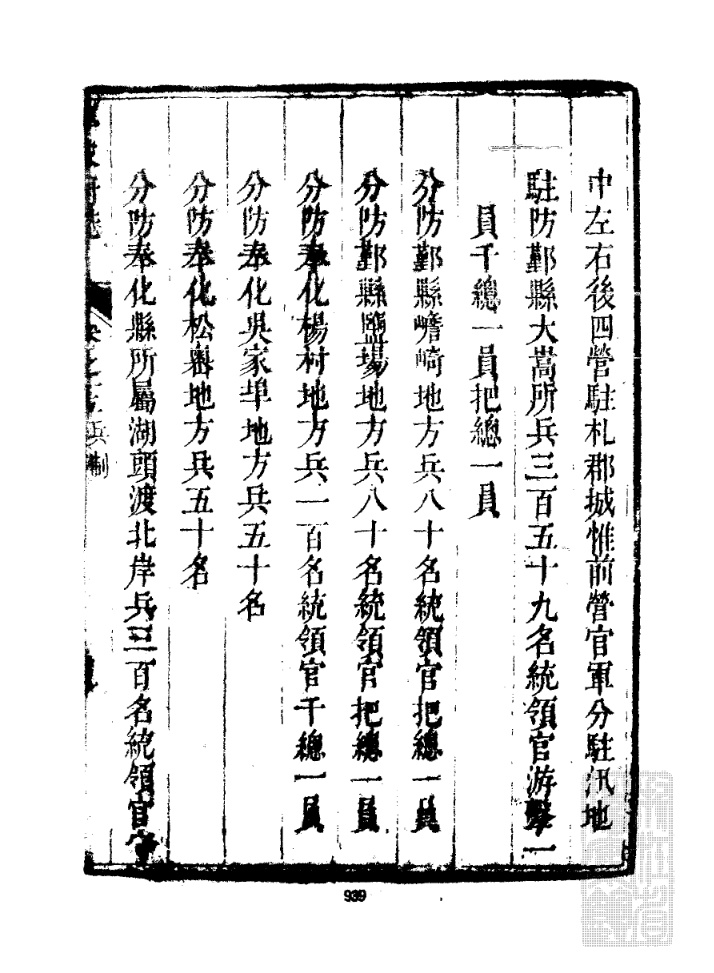 中左右後四營駐札郡城惟前營官軍分駐汛地
駐防鄞縣大嵩所兵三百五十九名統領官游擊一
員千總一員把總一員
分防鄞縣瞻崎地方兵八十名統領官把總一員
分防鄞縣鹽場地方兵八十名統領官把總一員
分防奉化楊村地方兵一百名統領官千總一員
分防奉化吳家埠地方兵五十名
分防奉化松嶴地方兵五十名
分防奉化縣所屬湖頭渡北岸兵三百名統領官守
波府志
卷之 兵制
939